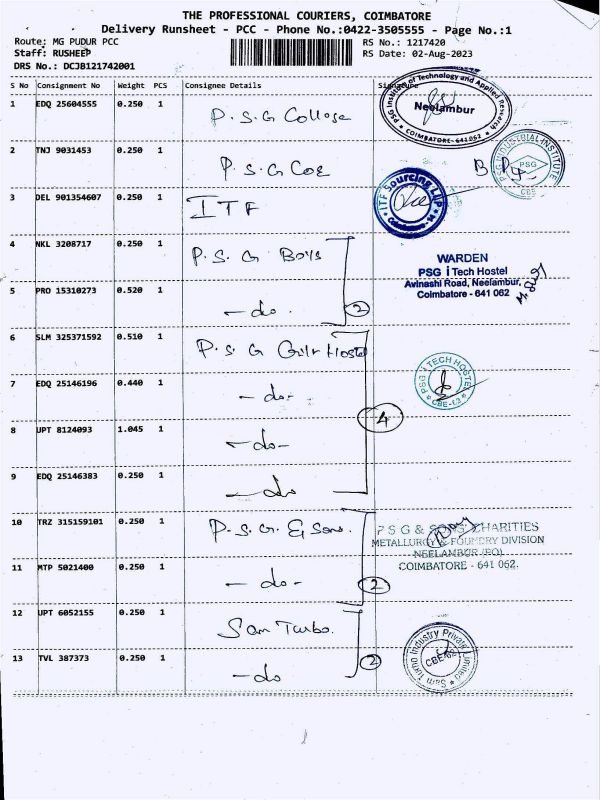 THE PROFESSIONAL COURIERS, COIMBATORE
Delivery Runsheet - PCC - Phone No.:0422-3505555 - Page No.:1
Route: MG PUDUR PCC RS No.: 1217420
Staff: RUSHEEP RS Date: 02-Aug-2023
DRS No.: DCJB121742001
S No Consignment No Weight PCS Consignee Details Signature
1 EDQ 25604555 0.250 1 P.S.G College
PSG Institute of Technology and Applied Research
Neelambur
COIMBATORE-641062
2 TNJ 9031453 0.250 1 P.S.G COE
PSG INDUSTRIAL INSTITUTE
PSG
CBE
3 DEL 901354607 0.250 1 ITF
ITF Sourcing LLP
Coimbatore-14
4 NKL 3208717 0.250 1 P.S.G Boys
WARDEN
PSG i Tech Hostel
Avinashi Road, Neelambur,
Coimbatore - 641 062
5 PRO 15310273 0.520 1 -do. 2
6 SLM 325371592 0.510 1 P.S.G Girls Hostel
7 EDQ 25146196 0.440 1 -do-
PSG i TECH HOSTEL
CBE-62
8 UPT 8124093 1.045 1 -do- 4
9 EDQ 25146383 0.250 1 -do
10 TRZ 315159101 0.250 1 P.S.G. & Sons.
P S G & SONS' CHARITIES
METALLURGY & FOUNDRY DIVISION
NEELAMBUR (PO)
COIMBATORE - 641 062.
11 MTP 5021400 0.250 1 -do- 2
12 UPT 6052155 0.250 1 Sam Turbo.
13 TVL 387373 0.250 1 -do 2
Sam Turbo Industry Private Limited
CBE-62